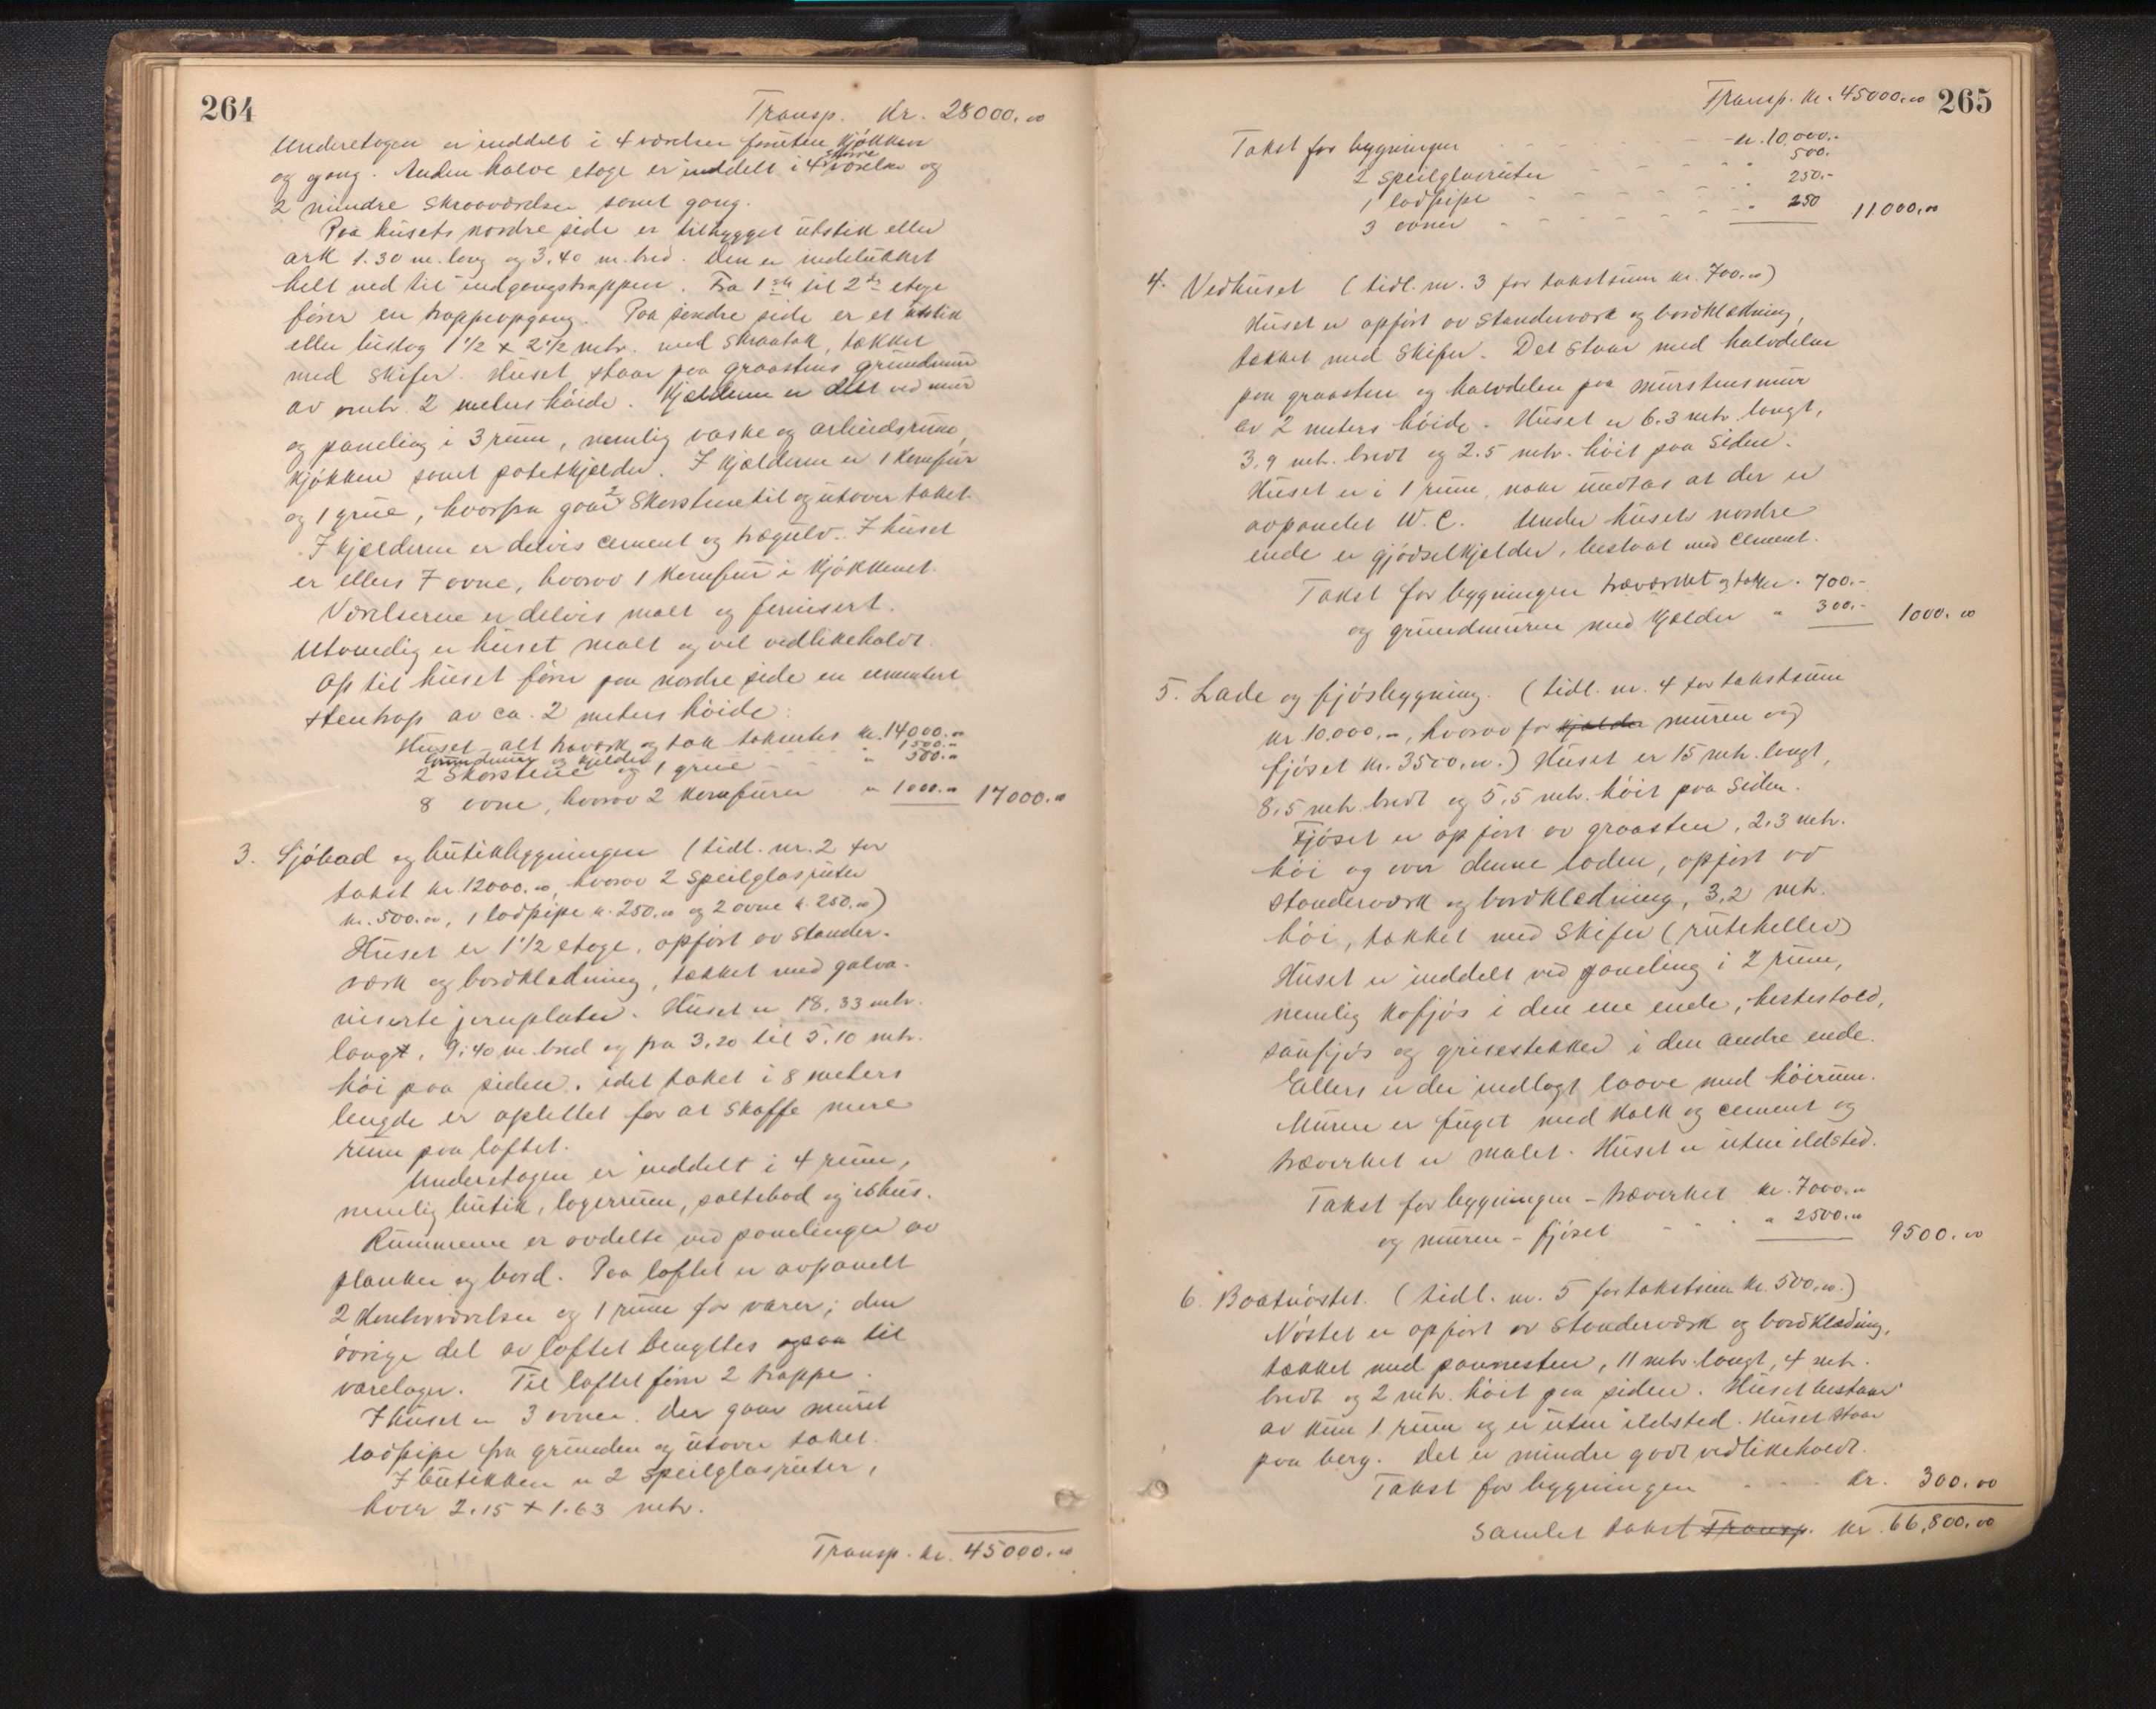 264
Transp. Kr. 28000.00
Underetagen er inddelt i 4 værelser foruten kjøkken
og gang. Anden halve etage er inddelt i 4 større værelser og
2 mindre skraaværelser samt gang.
Paa husets nordre side er tilbygget utstik eller
ark 1.30 m. lang og 3.40 m. bred. Den er indelukket
helt ned til indgangstrappen. Fra 1ste til 2den etage
fører en trappeopgang. Paa søndre side er et utstik
eller bislag 1 1/2 x 2 1/2 mtr. med skraatak, tækket
med skifer. Huset staar paa graastens grundmur
av omtr. 2 meters høide. Kjælderen er delt ved mur
og paneling i 3 rum, nemlig vaske og arbeidsrum,
kjøkken samt potetkjælder. I kjælderen er 1 komfur
og 1 grue, hvorfra gaar 2 skorstene til og utover taket.
I kjælderen er delvis cement og trægulv. I huset
er ellers 7 ovne, hvorav 1 komfur i kjøkkenet.
Værelserne er delvis malt og fernisert.
Utvendig er huset malt og vel vedlikeholdt.
Op til huset fører paa nordre side en cementert
stentrap av ca. 2 meters høide:
Huset - alt træverk og tak takseres kr. 14000.00
Grundmur og kjelder 1500.00
2 skorstene og 1 grue " 500.00
8 ovne, hvorav 2 komfurer " 1000.00 17000.00
3. Sjøbod og butikbygningen (tidl. nr. 2 for
takst kr. 12000.00, hvorav 2 speilglasruter
kr. 500.00, 1 lodpipe kr. 250.00 og 2 ovne kr. 250.00)
Huset er 1 1/2 etage, opført av stander-
værk og bordklædning, tækket med galva-
niserte jernplater. Huset er 18.33 mtr.
langt, 9.40 m. bred og fra 3.20 til 5.10 mtr.
høi paa siden, idet taket i 8 meters
lengde er oplettet for at skaffe mere
rum paa loftet.
Underetagen er inddelt i 4 rum,
nemlig butik, lagerrum, saltebod og ishus.
Rummene er avdelte ved panelinger av
planker og bord. Paa loftet er avpanelt
2 kontorværelser og 1 rum for varer; den
øvrige del av loftet benyttes ogsaa til
varelager. Til loftet fører 2 trapper.
I huset er 3 ovner. Der gaar muret
lodpipe fra grunden og utover taket.
I butikken er 2 speilglasruter,
hver 2.15 x 1.63 mtr.
Transp. kr. 45000.00
265
Transp. kr. 45000.00
Takst for bygningen - kr. 10.000.-
2 speilglasruter - " 500.-
1 lodpipe - " 250.-
3 ovner - " 250 11000.00
4. Vedhuset (tidl. nr. 3 for takstsum kr. 700.00)
Huset er opført av standerværk og bordklædning,
tækket med skifer. Det staar med halvdelen
paa graasten og halvdelen paa murstensmur
av 2 meters høide. Huset er 6.3 mtr. langt,
3.9 mtr. bredt og 2.5 mtr. høit paa siden.
Huset er i 1 rum, naar undtas at der er
avpanelet W.C. Under husets nordre
ende er gjødselkjelder, bestaat med cement.
Takst for bygningen træverket og taket. 700.-
og grundmuren med kjelder " 300.- 1000.00
5. Lade og fjøsbygning. (tidl. nr. 4 for takstsum
kr. 10.000.00, hvorav for kjelder muren og
fjøset kr. 3500.00.) Huset er 15 mtr. langt,
8.5 mtr. bredt og 5.5 mtr. høit paa siden.
Fjøset er opført av graasten, 2.3 mtr.
høi og over denne laden, opført av
standerværk og bordklædning, 3.2 mtr.
høi, tækket med skifer (ruteheller)
Huset er inddelt ved paneling i 2 rum,
nemlig kofjøs i den ene ende, hestestald,
saufjøs og grisestekker i den andre ende.
Ellers er der indlagt laave med høirum.
Muren er fuget med kalk og cement og
træverket er malet. Huset er uten ildsted.
Takst for bygningen - træverket kr. 7000.00
og muren - fjøset " 2500.00 9500.00
6. Baatnøstet. (tidl. nr. 5 for takstsum kr. 500.00.)
Nøstet er opført av standerværk og bordklædning,
tækket med pannesten, 11 mtr. langt, 4 mtr.
bredt og 2 mtr. høit paa siden. Huset bestaar
av kun 1 rum og er uten ildsted. Huset staar
paa berg. Det er mindre godt vedlikeholdt.
Takst for bygningen kr. 300.00
Samlet takst Transp. kr. 66,800.00